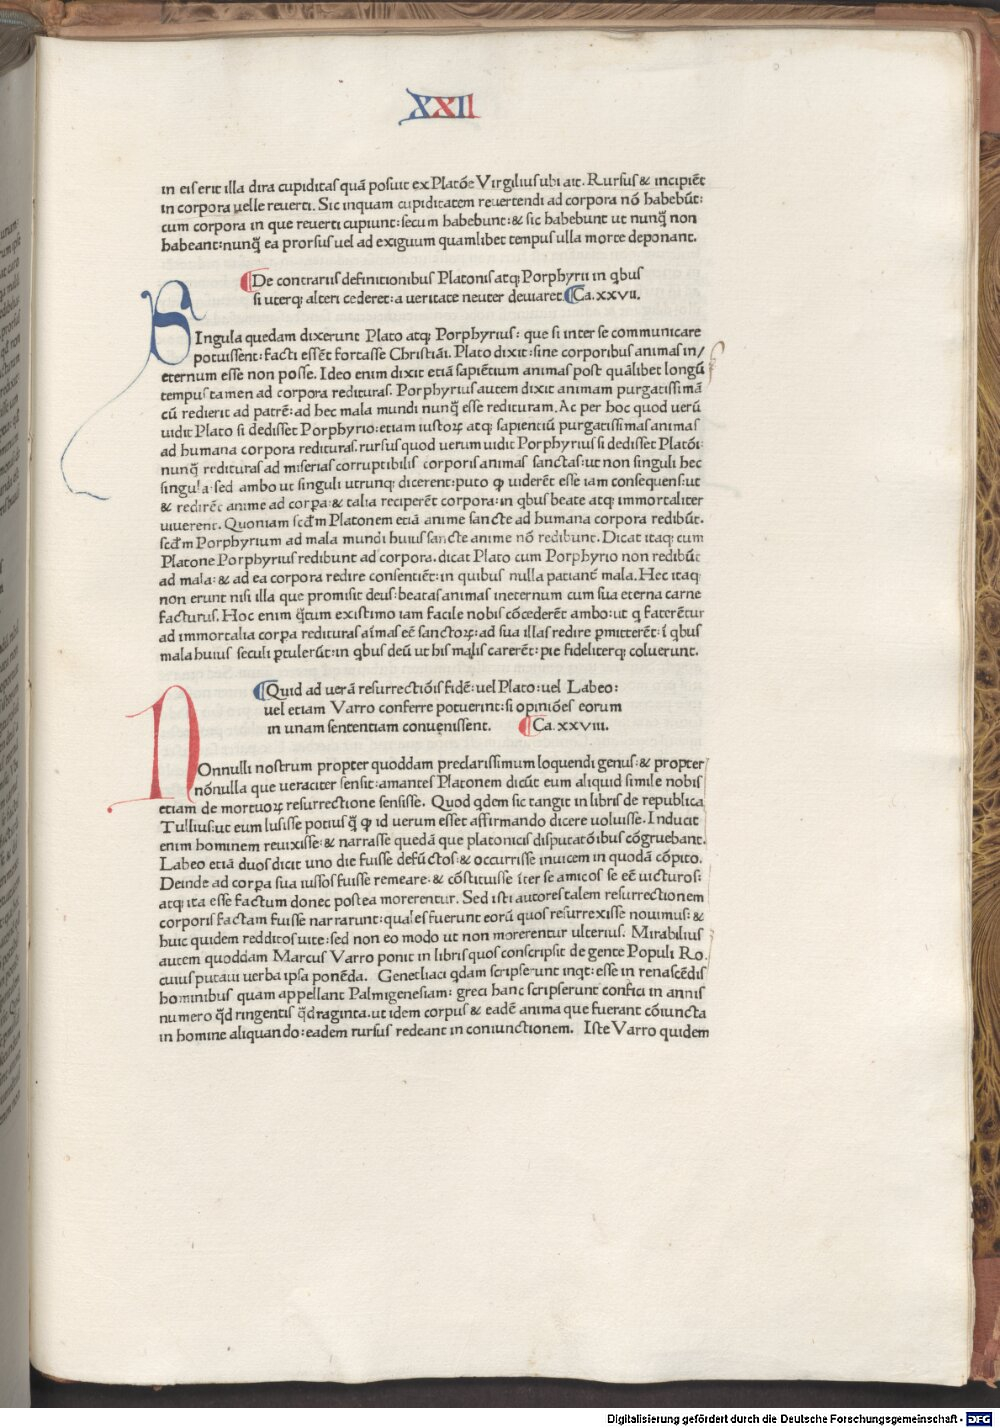 XXII
in eis erit illa dira cupiditas quā posuit ex Platōe Virgilius ubi ait. Rursus & incipiēt
in corpora uelle reuerti. Sic inquam cupiditatem reuertendi ad corpora nō habebūt:
cum corpora in que reuerti cupiunt: secum habebunt: & sic habebunt ut nunq̄ non
habeant: nunq̄ ea prorsus uel ad exiguum quamlibet tempus ulla morte deponant.
¶De contrariis definitionibus Platonis atq; Porphyrii in qbus
si uterq; alteri cederet: a ueritate neuter deuiaret. ¶Ca. xxvii.
SIngula quedam dixerunt Plato atq; Porphyrius: que si inter se communicare
potuissent: facti essēt fortasse Christiāi. Plato dixit: sine corporibus animas in/
eternum esse non posse. Ideo enim dixit etiā sapiētium animas post quālibet longū
tempus tamen ad corpora redituras. Porphyrius autem dixit animam purgatissimā
cū redierit ad patrē: ad hec mala mundi nunq̄ esse redituram. Ac per hoc quod uerū
uidit Plato si dedisset Porphyrio: etiam iustoꝝ atq; sapientiū purgatissimas animas
ad humana corpora redituras. rursus quod uerum uidit Porphyrius si dedisset Platōi:
nunq̄ redituras ad miserias corruptibilis corporis animas sanctas: ut non singuli hec
singula: sed ambo ut singuli utrunq; dicerent: puto ꝙ uiderēt esse iam consequens: ut
& redirēt anime ad corpa: & talia reciperēt corpora: in qbus beate atq; immortaliter
uiuerent. Quoniam scd̄m Platonem etiā anime sancte ad humana corpora redibūt.
scd̄m Porphyrium ad mala mundi huius sancte anime nō redibunt. Dicat itaq; cum
Platone Porphyrius redibunt ad corpora. dicat Plato cum Porphyrio non redibūt
ad mala: & ad ea corpora redire consentiēt: in quibus nulla patiant̄ mala. Hec itaq;
non erunt nisi illa que promisit deus: beatas animas ineternum cum sua eterna carne
facturus. Hoc enim q̄tum existimo iam facile nobis cōcederēt ambo: ut q faterētur
ad immortalia corpa redituras aīmas eē sanctoꝝ: ad sua illas redire pmitterēt: ī qbus
mala huius seculi ptulerūt: in qbus deū ut his malis carerēt: pie fideliterq; coluerunt.
¶Quid ad uerā resurrectiōis fidē: uel Plato: uel Labeo:
uel etiam Varro conferre potuerint: si opiniōes eorum
in unam sententiam conuenissent. ¶Ca. xxviii.
NOnnulli nostrum propter quoddam preclarissimum loquendi genus: & propter
nōnulla que ueraciter sensit: amantes Platonem dicūt eum aliquid simile nobis
etiam de mortuoꝝ resurrectione sensisse. Quod qdem sic tangit in libris de republica
Tullius: ut eum lusisse potius q̄ ꝙ id uerum esset affirmando dicere uoluisse. Inducit
enim hominem reuixisse: & narrasse quedā que platonicis disputatōibus cōgruebant.
Labeo etiā duos dicit uno die fuisse defūctos: & occurrisse inuicem in quodā cōpito.
Deinde ad corpa sua iussos fuisse remeare: & cōstituisse īter se amicos se eē uicturos:
atq; ita esse factum donec postea morerentur. Sed isti autores talem resurrectionem
corporis factam fuisse narrarunt: quales fuerunt eorū quos resurrexisse nouimus: &
huic quidem redditos uite: sed non eo modo ut non morerentur ulterius. Mirabilius
autem quoddam Marcus Varro ponit in libris quos conscripsit de gente Populi Ro.
cuius putaui uerba ipsa ponēda. Genethliaci qdam scripserunt inqt: esse in renascēdis
hominibus quam appellant Palmigenesiam: greci hanc scripserunt confici in annis
numero q̄dringentis q̄draginta. ut idem corpus & eadē anima que fuerant cōiuncta
in homine aliquando: eadem rursus redeant in coniunctionem. Iste Varro quidem
Digitalisierung gefördert durch die Deutsche Forschungsgemeinschaft - DFG